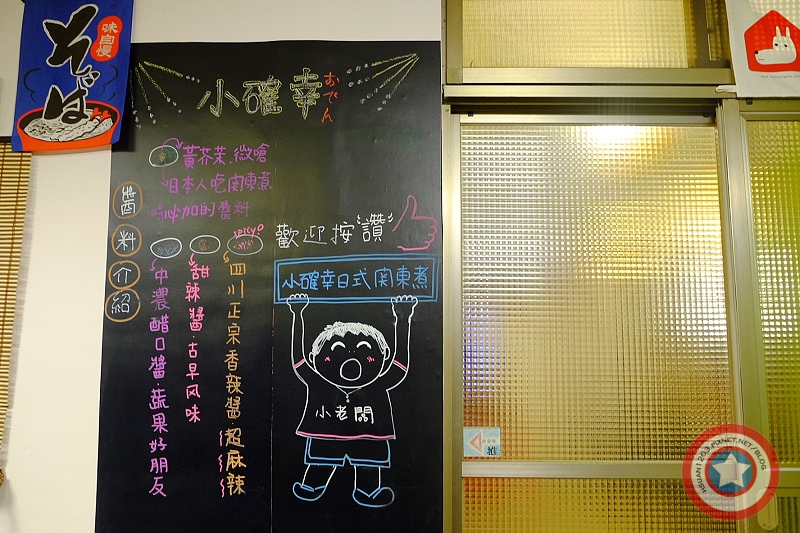 味自慢
そば
小確幸おでん
黃芥茉.微嗆
日本人吃関東煮
時必加的醬料
醬料介紹
spicy
四川正宗香辣醬 超麻辣
甜辣醬.古早风味
中濃醋口醬.蔬果好朋友
歡迎按"讚"
小確幸日式関東煮
小老闆
推
HSUAN1203.PIXNET.NET/BLOG